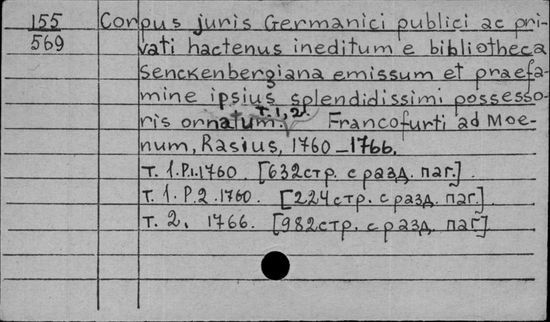 155 Corpus juris Germanici publici ac pri-
569 vati hactenus ineditum e bibliotheca
Senckenbergiana emissum et praefa-
mine ipsius splendidissimi possesso-
ris ornatum. т. 1, 2. Francofurti ad Moe-
num, Rasius, 1760-1766.
т. 1. P.1. 1760. [632 стр. с разд. паг.].
т. 1. P. 2. 1760. [224 стр. с разд. паг.].
т. 2. 1766. [982 стр. с разд. паг.]